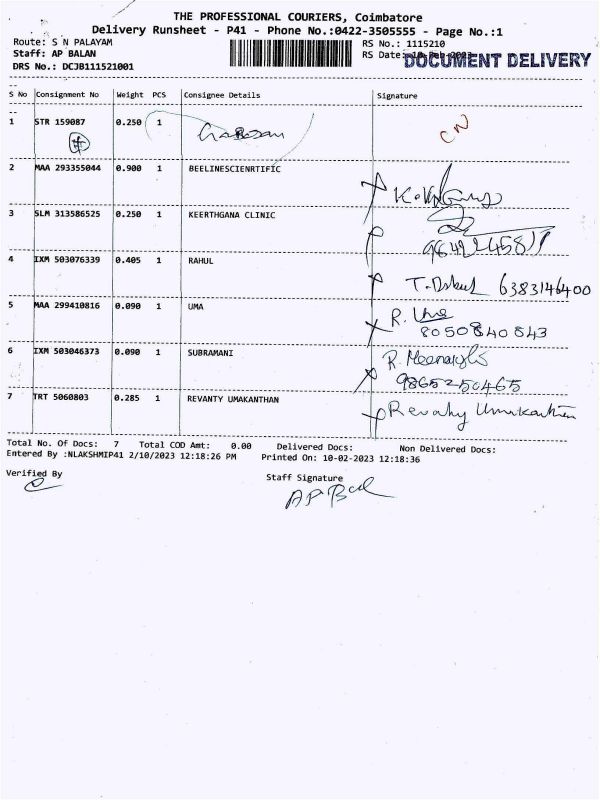 THE PROFESSIONAL COURIERS, Coimbatore
Delivery Runsheet - P41 - Phone No.:0422-3505555 - Page No.:1
Route: S N PALAYAM
RS No.: 1115210
Staff: AP BALAN
RS Date: 10-Feb-2023
DOCUMENT DELIVERY
DRS No.: DCJB111521001
S No Consignment No Weight PCS Consignee Details Signature
1 STR 159087 0.250 1 CN
2 MAA 293355044 0.900 1 BEELINESCIENRTIFIC
3 SLM 313586525 0.250 1 KEERTHGANA CLINIC
4 IXM 503076339 0.405 1 RAHUL
6383146400
5 MAA 299410816 0.090 1 UMA R. Uma
8050840843
6 IXM 503046373 0.090 1 SUBRAMANI
9865250465
7 TRT 5060803 0.285 1 REVANTY UMAKANTHAN Revathy Umakanthan
Total No. Of Docs: 7 Total COD Amt: 0.00 Delivered Docs: Non Delivered Docs:
Entered By :NLAKSHMIP41 2/10/2023 12:18:26 PM Printed On: 10-02-2023 12:18:36
Verified By
Staff Signature
AP Bal